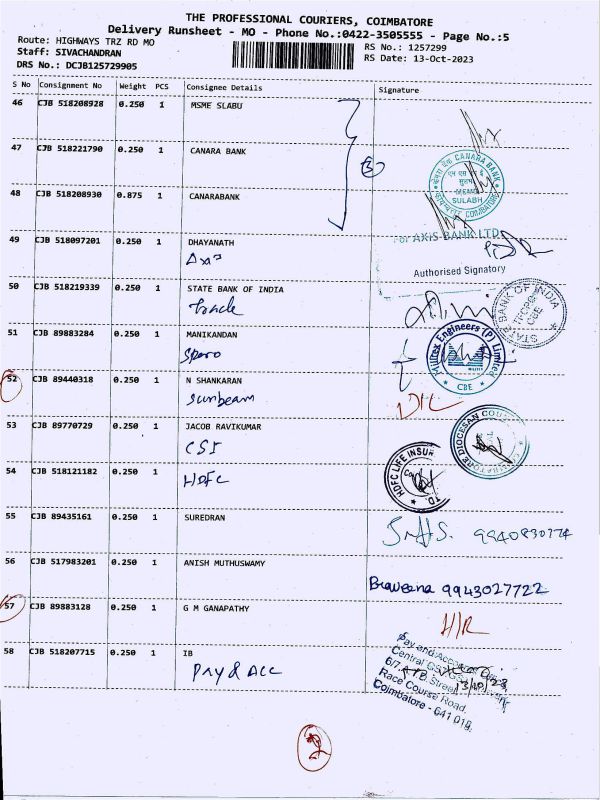 THE PROFESSIONAL COURIERS, COIMBATORE
Delivery Runsheet - MO - Phone No.:0422-3505555 - Page No.:5
Route: HIGHWAYS TRZ RD MO
RS No.: 1257299
Staff: SIVACHANDRAN
RS Date: 13-Oct-2023
DRS No.: DCJB125729905
S No Consignment No Weight PCS Consignee Details Signature
46 CJB 518208928 0.250 1 MSME SLABU
47 CJB 518221790 0.250 1 CANARA BANK
3
CANARA BANK
SULABH
COIMBATORE
48 CJB 518208930 0.875 1 CANARABANK
For AXIS BANK LTD
49 CJB 518097201 0.250 1 DHAYANATH
Axis
Authorised Signatory
50 CJB 518219339 0.250 1 STATE BANK OF INDIA
Trade
STATE BANK OF INDIA
CBE
51 CJB 89883284 0.250 1 MANIKANDAN
Sparo
Milltex Engineers (P) Limited
CBE
52 CJB 89440318 0.250 1 N SHANKARAN
Sunbeam
D/L
53 CJB 89770729 0.250 1 JACOB RAVIKUMAR
CSI
COIMBATORE DIOCESAN
54 CJB 518121182 0.250 1
HDFC
HDFC LIFE INSUR
55 CJB 89435161 0.250 1 SUREDRAN
9940830774
56 CJB 517983201 0.250 1 ANISH MUTHUSWAMY
Braveena 9943027722
57 CJB 89883128 0.250 1 G M GANAPATHY
H/R
58 CJB 518207715 0.250 1 IB
Pay & Acc
Pay and Accounts
Central
6/7, A.T.D. Street
Race Course Road,
Coimbatore - 641 018.